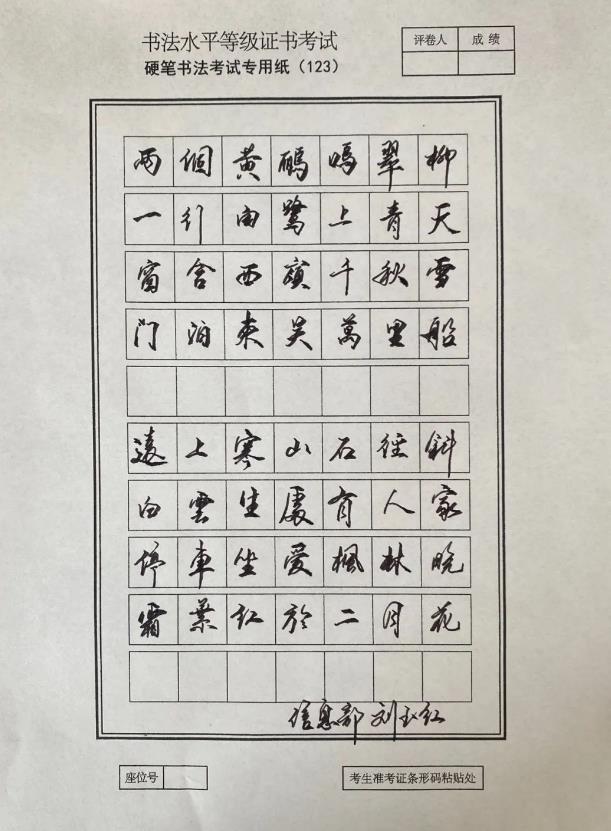 书法水平等级证书考试
硬笔书法考试专用纸（123）
评卷人 成绩
兩個黄鸝鳴翠柳
一行白鷺上青天
窗含西嶺千秋雪
門泊東吴萬里船
遠上寒山石徑斜
白雲生處有人家
停車坐愛楓林晚
霜葉红於二月花
信息部 刘玉红
座位号
考生准考证条形码粘贴处